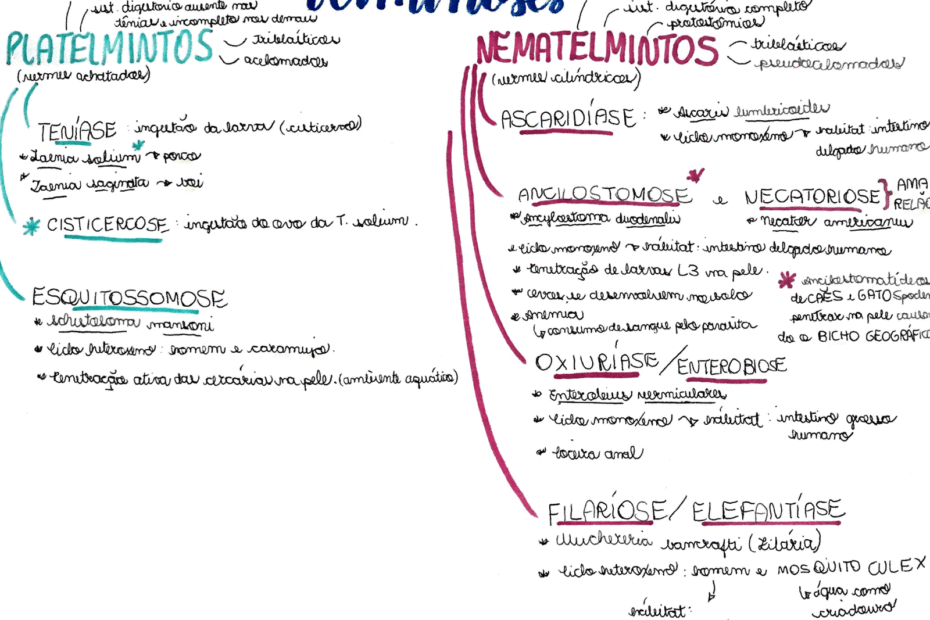 sist. digestório ausente nas
tênias e incompleto nos demais
verminoses
PLATELMINTOS
triblásticos
acelomados
(vermes achatados)
TENÍASE : ingestão da larva (cisticerco)
Taenia solium * → porco
Taenia saginata → boi
* CISTICERCOSE : ingestão do ovo da T. solium.
ESQUITOSSOMOSE
Schistosoma mansoni
ciclo heteroxeno : homem e caramujo.
penetração ativa das cercárias na pele. (ambiente aquático)
sist. digestório completo
protostômios
NEMATELMINTOS
triblásticos
pseudocelomados
(vermes cilíndricos)
ASCARIDÍASE : Ascaris lumbricoides
ciclo monoxêno → habitat: intestino
delgado humano
ANCILOSTOMOSE * e NECATORIOSE } AMA
RELÃO
Ancylostoma duodenalis
necator americanus
ciclo monoxeno → hábitat : intestino delgado humano
penetração de larvas L3 na pele.
ovos se desenvolvem no solo
Anemia
consumo de sangue pelo parasita
* Ancilostomatídeos
de CÃES e GATOS podem
penetrar na pele causan
do o BICHO GEOGRÁFICO
OXIURÍASE / ENTEROBIOSE
Enterobius vermiculares
ciclo monoxeno → hábitat : intestino grosso
humano
coceira anal
FILARIOSE / ELEFANTÍASE
Wuchereria bancrofti (Filária)
ciclo heteroxeno : homem e MOSQUITO CULEX
água como
criadouro
hábitat: